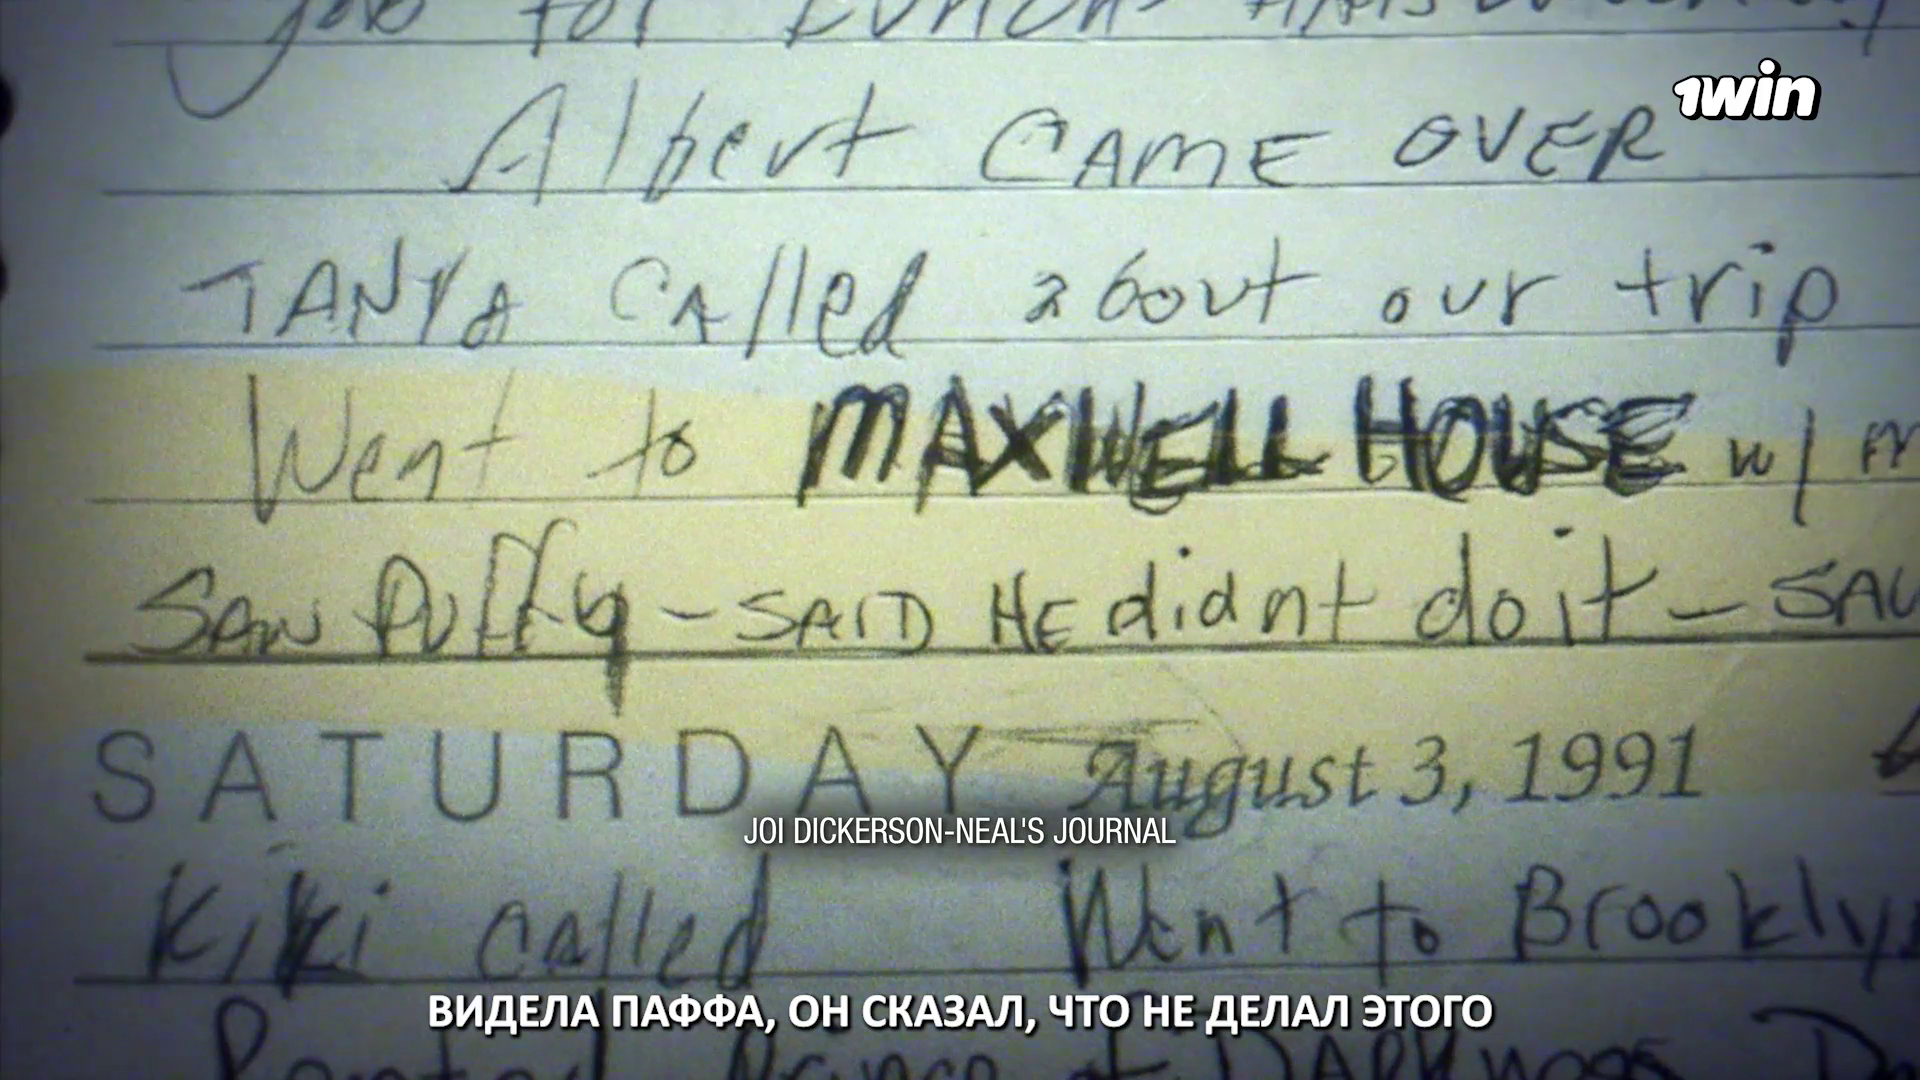 job for LUNCH
1win
Albert CAME OVER
TANYA CAlled about our trip
Went to MAXWELL HOUSE w/
SAW PUffy - SAID HE didnt do it -
SATURDAY August 3, 1991
JOI DICKERSON-NEAL'S JOURNAL
Kiki called Went to Brooklyn
ВИДЕЛА ПАФФА, ОН СКАЗАЛ, ЧТО НЕ ДЕЛАЛ ЭТОГО
Rented Prince of DARKNess